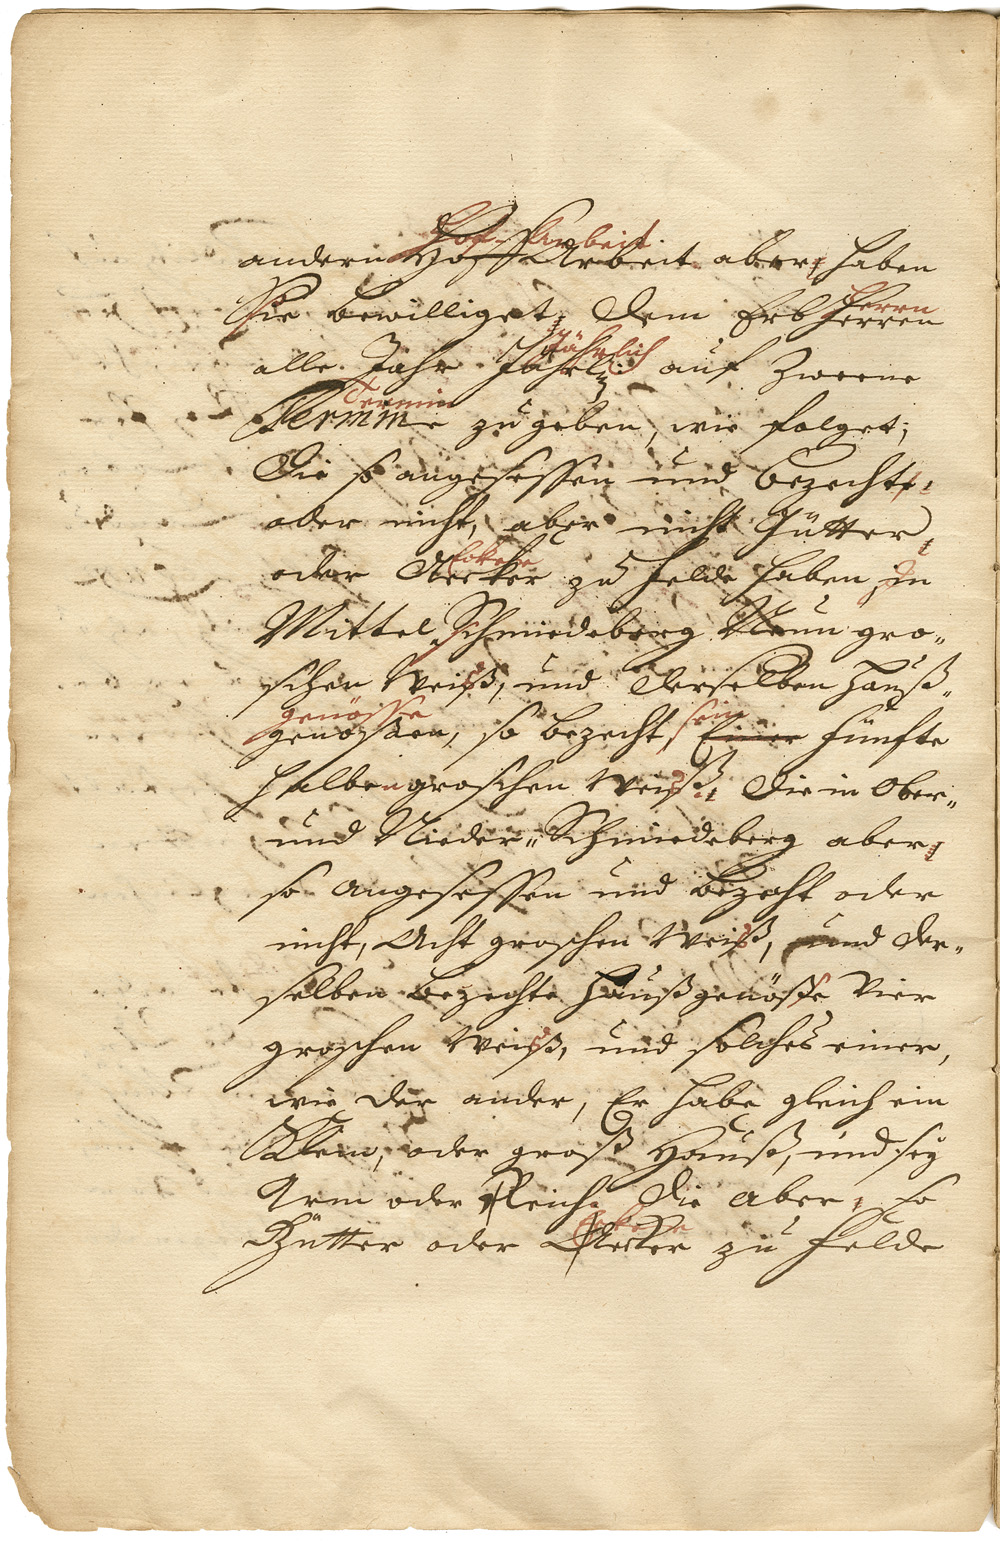 Hof Arbeit
andern Hoff Arbeit aber, haben
Sie bewilliget, dem Erb Herren
Herrn
alle Jahr Jährl: auf Zweene
Jährlich
Termine zu geben, wie folget;
Termin
Die so angesessen und bezecht,
oder nicht, aber nicht Gütter,
oder Aecker zu felde haben, in
Eckere
Mittel Schmiedeberg Neun gro„
schen Weiß, und derselben Hauß„
genossen, so bezecht, Einer fünfte
genösse sein
halben groschen Weiß: Die in Ober„
und Nieder„ Schmiedeberg aber,
so angesessen und bezecht oder
nicht, Acht groschen Weiß, und der„
selben bezechte Haußgenösse Vier
groschen Weiß, und solches einer,
wie der ander, Er habe gleich ein
Klein, oder groß Hauß, und sey
Arm oder Reich. Die aber, so
Gütter oder Aecker zu felde
Eckere